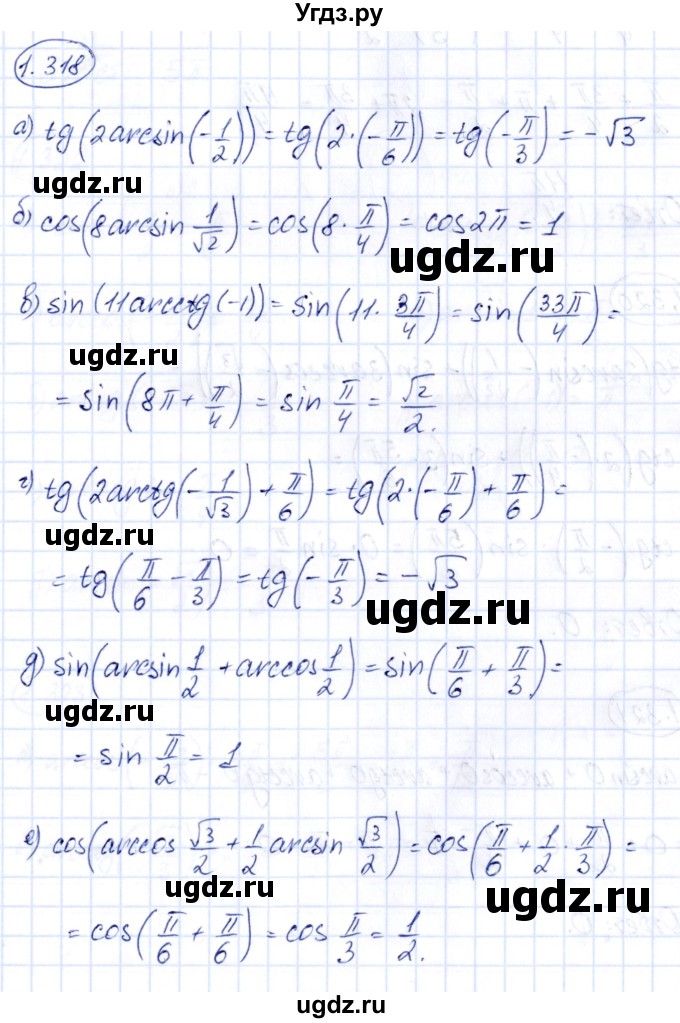 Угдз.ру
1.318
а) tg(2arcsin(-1/2)) = tg(2·(-π/6)) = tg(-π/3) = -√3
ugdz.ru
б) cos(8arcsin 1/√2) = cos(8·π/4) = cos2π = 1
ugdz.ru
в) sin(11arcctg(-1)) = sin(11·3π/4) = sin(33π/4) =
ugdz.ru
= sin(8π+π/4) = sin π/4 = √2/2.
г) tg(2arctg(-1/√3)+π/6) = tg(2·(-π/6)+π/6) =
ugdz.ru
= tg(π/6 - π/3) = tg(-π/3) = -√3
ugdz.ru
д) sin(arcsin 1/2 + arccos 1/2) = sin(π/6 + π/3) =
ugdz.ru
= sin π/2 = 1
е) cos(arccos √3/2 + 1/2 arcsin √3/2) = cos(π/6 + 1/2·π/3) =
ugdz.ru
ugdz.ru
= cos(π/6 + π/6) = cos π/3 = 1/2.
ugdz.ru